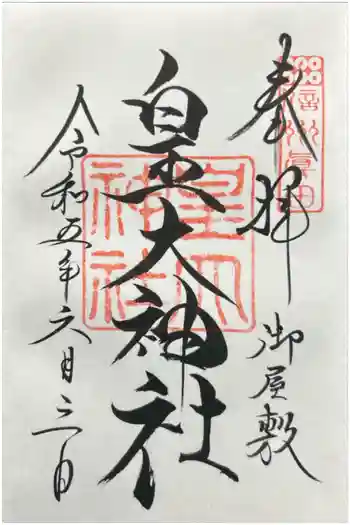 奉拝
信州眞田
御屋敷
皇大神社
皇大神社
令和五年六月三日